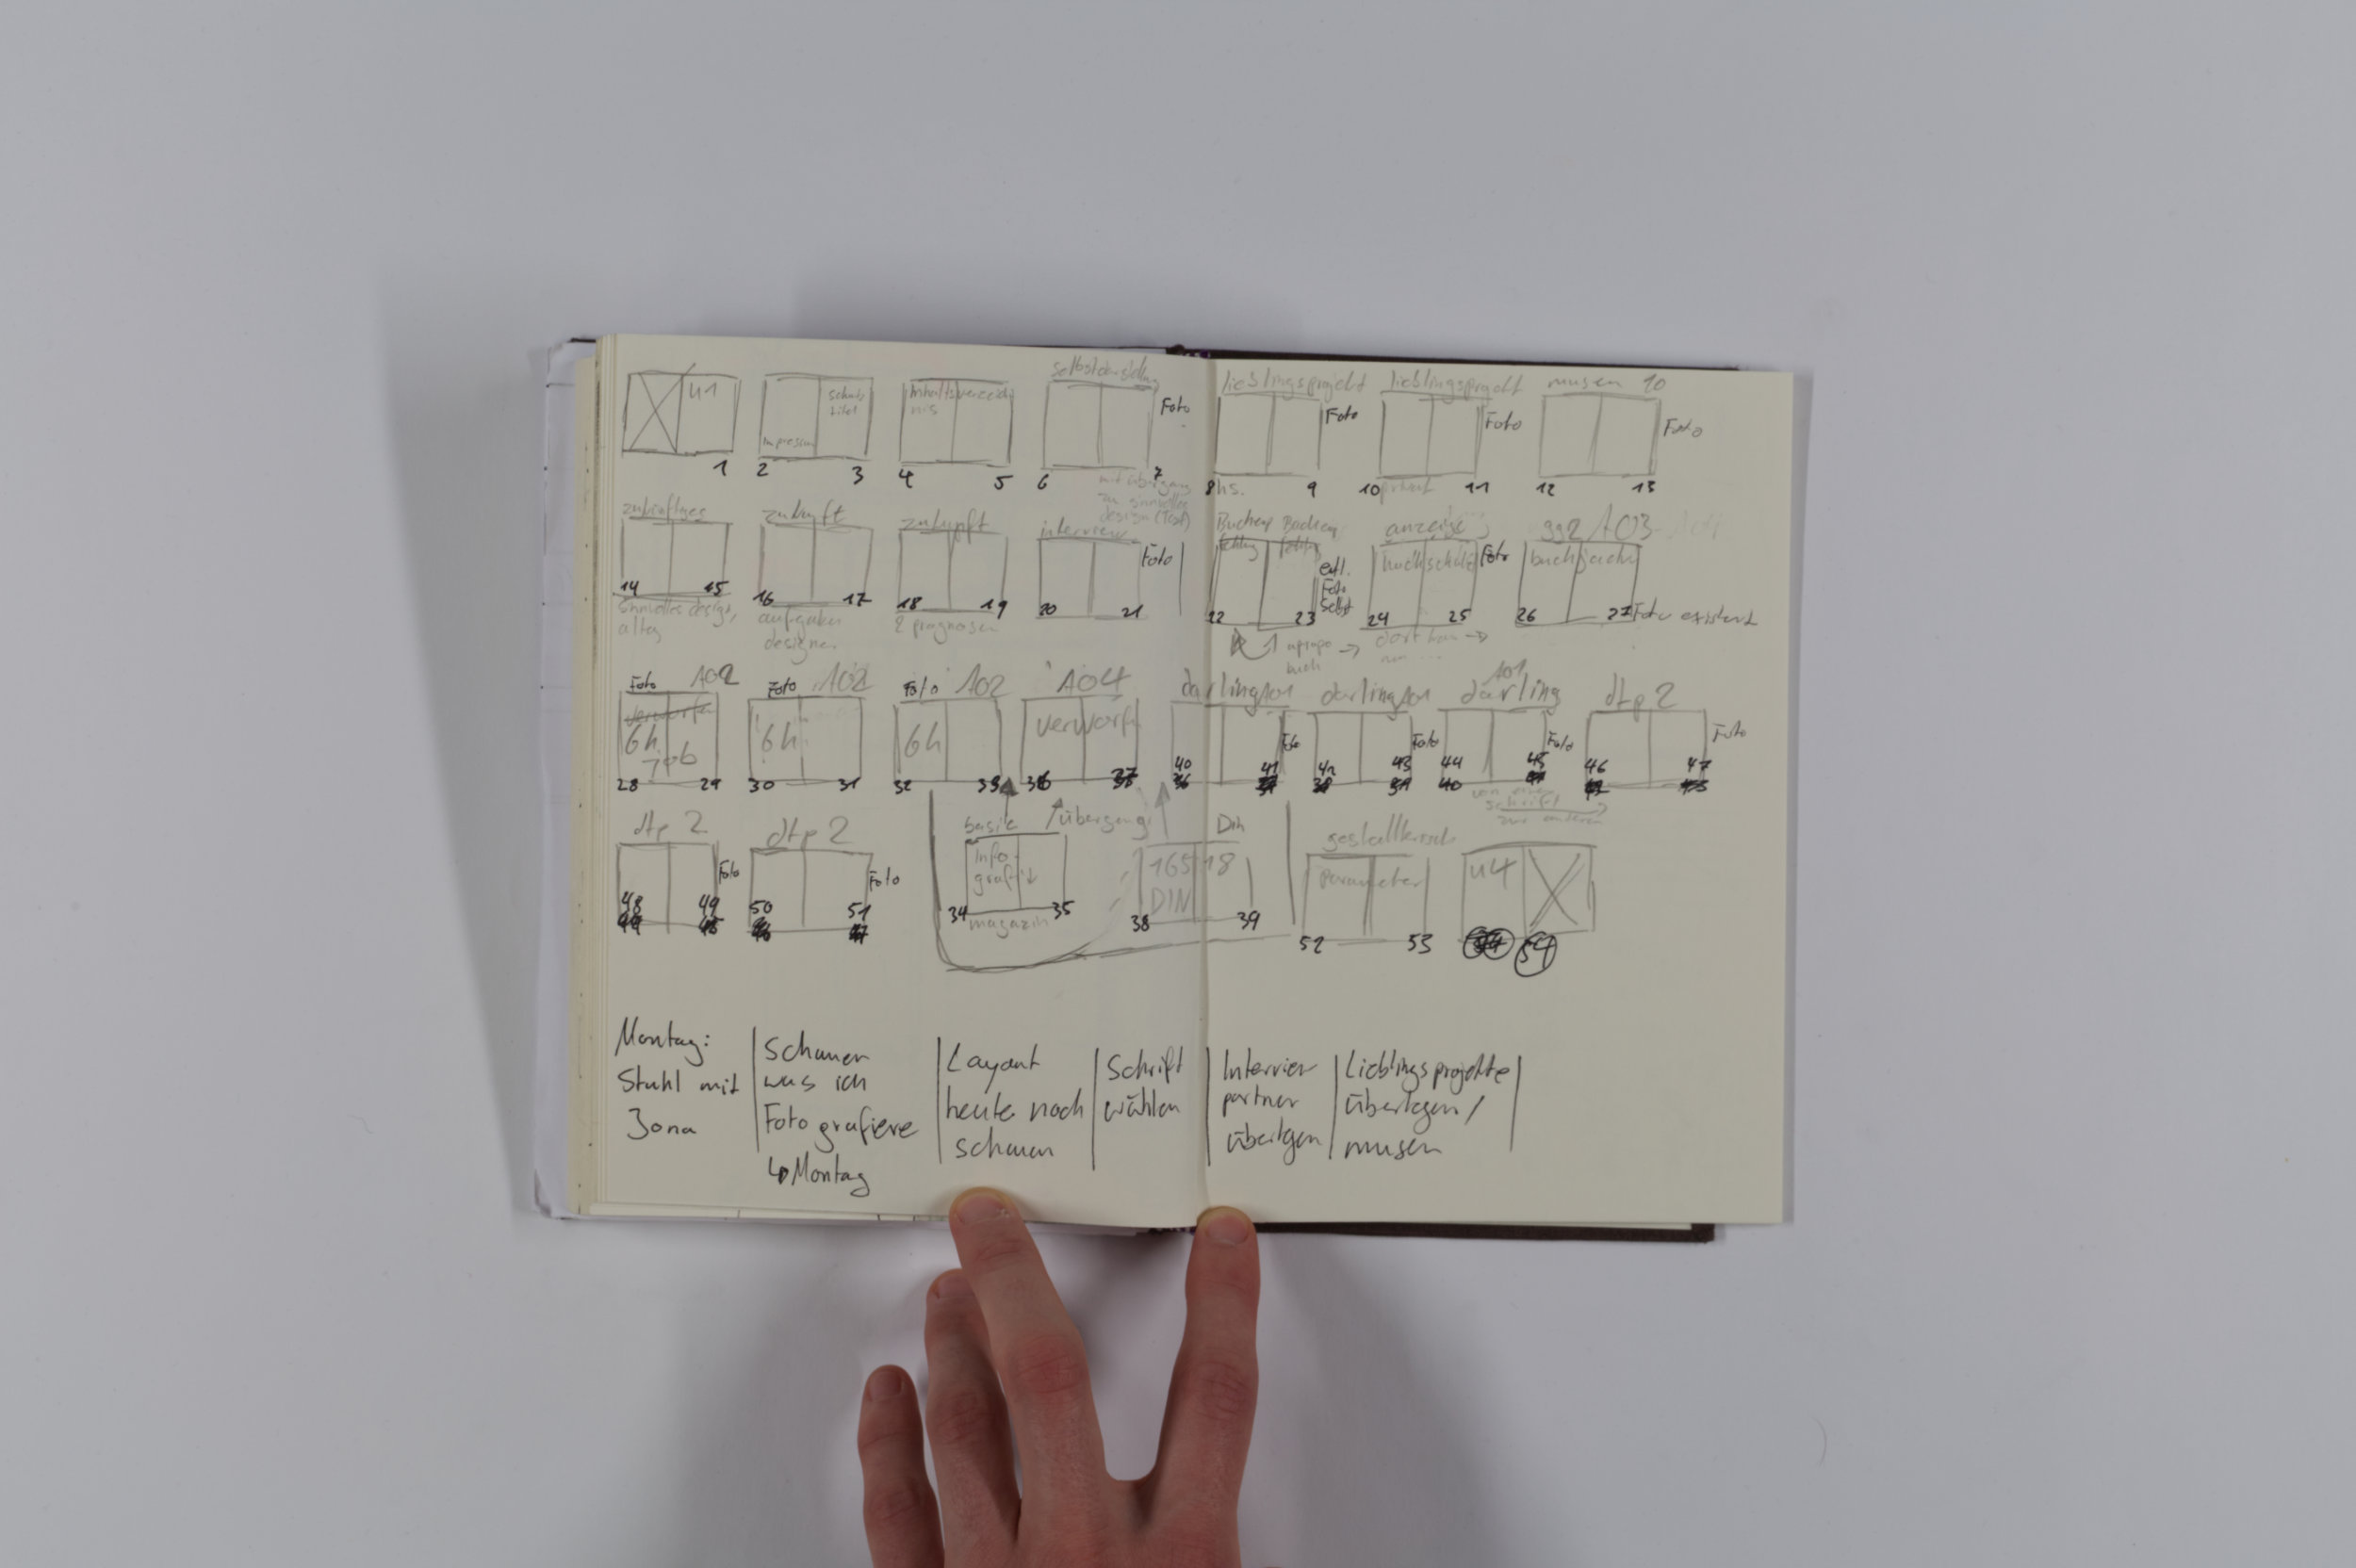 selbstdarstellung
lieblingsprojekt
lieblingsprojekt
musen 10
U1
schmutz
titel
impressum
inhaltsverzeich
nis
Foto
Foto
Foto
Foto
1
2 3
4 5
6 7
8 hs. 9
10 privat 11
12 13
mit übergang
zu sinnvolles
design (Text)
zukünftiges
zukunft
zukunft
interview
Foto
anzeige
hochschule
Foto
gg2 A03
buch
14 15
16 17
18 19
20 21
22 23
24 25
26 27 Foto existent
evtl.
Foto
Selbst
sinnvolles design,
alltag
aufgaben
designer
2 prognosen
apropo
buch
Foto A02
Foto A02
Foto A02
A04
darling101
darling101
101
darling
dtp 2
verworfen
6h
Job
6h
6h
verworfen
Foto
Foto
Foto
Foto
28 29
30 31
32 33
36 37
40 41
42 43
44 45
46 47
von einer
schrift
zur anderen
dtp 2
dtp 2
basic
übergang
Din
gestalterisch
Info
grafik
16518
DIN
parameter
U4
Foto
Foto
48 49
50 51
34 35
magazin
38 39
52 53
54
Montag:
Stuhl mit
Jona
Schauen
was ich
Fotografiere
↳ Montag
Layout
heute noch
schauen
Schrift
wählen
Interview
partner
überlegen
Lieblingsprojekte
überlegen /
musen